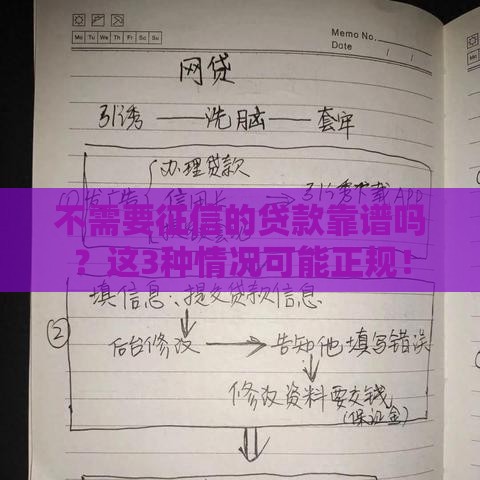 Memo No.
Mo Tu We Th Fr Sa Su
Date / /
网贷
引诱 — 洗脑 — 套牢
办理贷款
(1) 发广告 信用卡 → 引诱下载APP
不需要征信的贷款靠谱吗
？这3种情况可能正规！
填信息：提交贷款信息
②
后台修改 → 告知他填写错误
修改资料要交钱
(保证金)